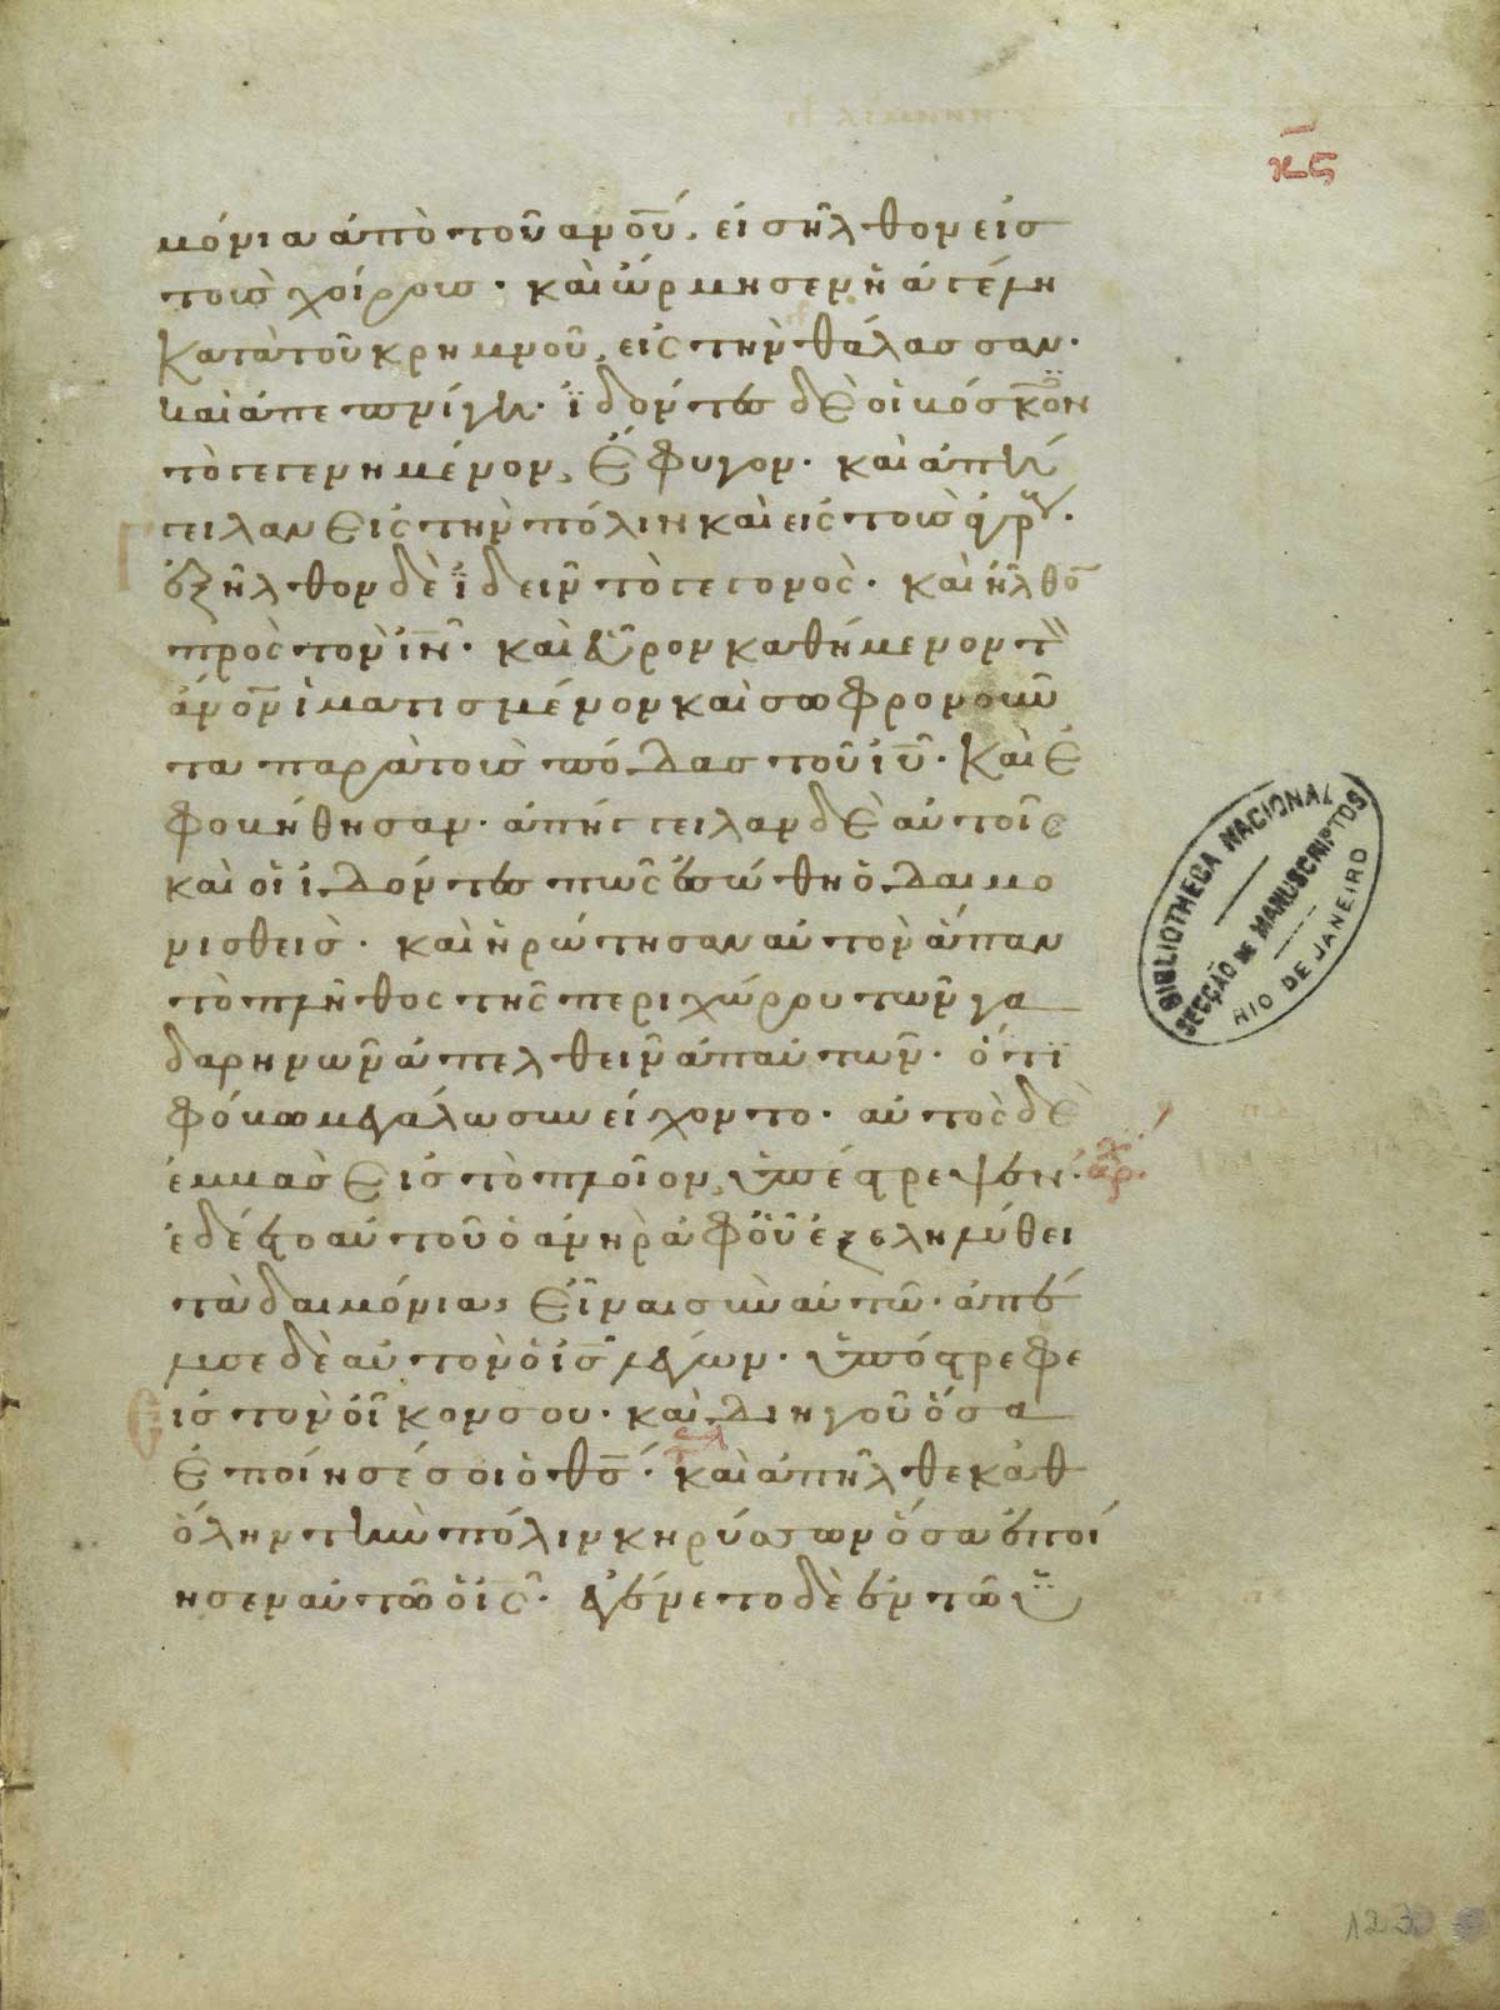 κϛ
μόνια ἀπὸ τοῦ ἀνο̅υ, εἰσῆλθον εἰσ
τοὺσ χοίρουσ· καὶ ὥρμησεν ἡ ἀγέλη
κατὰ τοῦ κρημνοῦ, εἰς τὴν θάλασσαν·
καὶ ἀπεπνίγη· ἰδόντεσ δὲ οἱ βόσκον
τὸ γεγενημένον, ἔφυγον· καὶ ἀπήγ
γειλαν εἰς τὴν πόλιν καὶ εἰς τοὺσ ἀγρ·
ἐξῆλθον δὲ ἰδεῖν τὸ γεγονὸς· καὶ ἦλθο̅
πρὸς τὸν ι̅ν· καὶ εὗρον καθήμενον τ
ἀνο̅ν ἱματισμένον καὶ σωφρονοῦν
τα παρὰ τοὺσ πόδασ τοῦ ι̅υ· καὶ ἐ
φοβήθησαν· ἀπήγγειλαν δὲ αὐτοῖς
καὶ οἱ ἰδόντεσ πῶς ἐσώθη ὁ δαιμο
νισθεισ· καὶ ἠρώτησαν αὐτὸν ἅπαν
τὸ πλῆθος τῆς περιχώρου τῶν γα
δαρηνῶν ἀπελθεῖν ἀπ αὐτῶν· ὅτι
φόβω μεγάλω συνείχοντο· αὐτὸς δὲ
ἐμβὰσ εἰσ τὸ πλοῖον, ὑπέστρεψεν·
ἐδέετο αὐτοῦ ὁ ἀνὴρ ἀφ οὗ ἐξεληλύθει
τὰ δαιμόνια, εἶναι σὺν αὐτῶ· ἀπέ
λυσε δὲ αὐτὸν ὁ ι̅σ λέγων· ὑπόστρεφε
ισ τον οἶκον σου· καὶ διηγοῦ ὅσα
ἐποίησέ σοι ὁ θ̅σ· καὶ ἀπῆλθε καθ
ὅλην τὴν πόλιν κηρύσσων ὅσα ἐποί
ησεν αὐτῶ ὁ ι̅ς· ἐγένετο δὲ ἐν τῶ ὑ
BIBLIOTHECA NACIONAL
SECÇÃO DE MANUSCRIPTOS
RIO DE JANEIRO
123